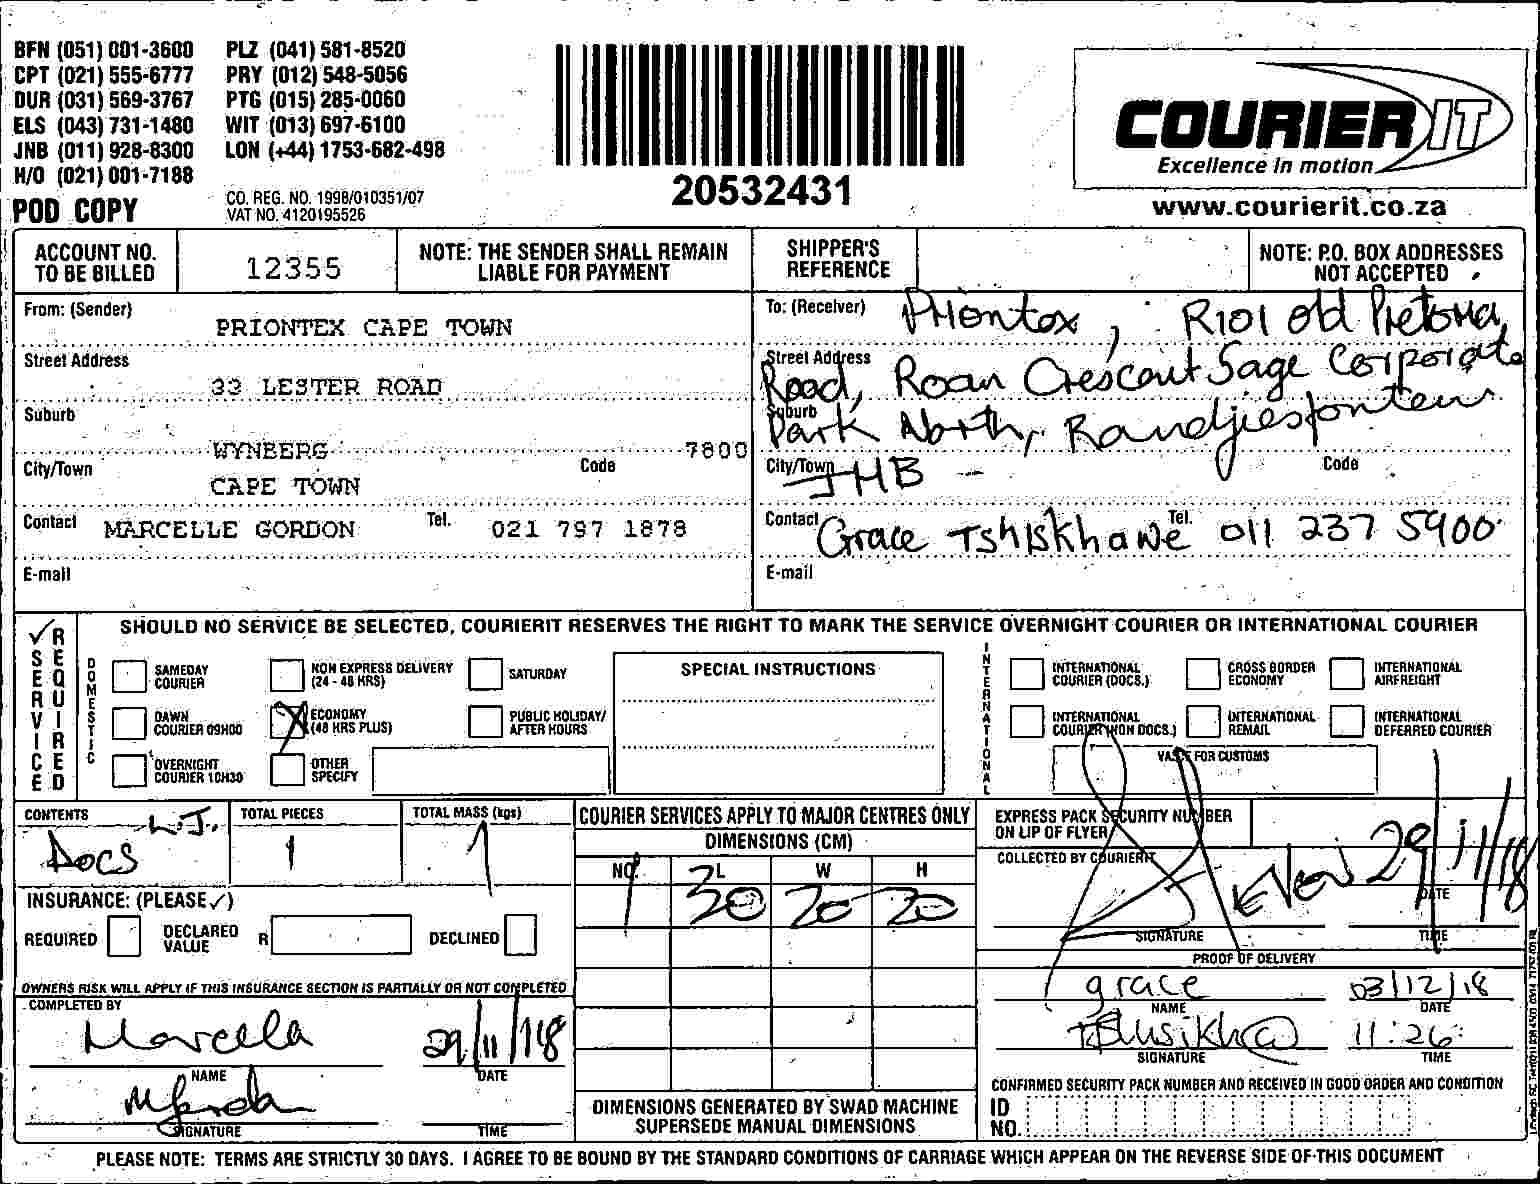 BFN (051) 001-3600 PLZ (041) 581-8520
CPT (021) 555-6777 PRY (012) 548-5056
DUR (031) 569-3767 PTG (015) 285-0060
ELS (043) 731-1480 WIT (013) 697-6100
JNB (011) 928-8300 LON (+44) 1753-682-498
H/O (021) 001-7188
POD COPY
CO. REG. NO. 1998/010351/07
VAT NO. 4120195526
20532431
COURIER IT
Excellence in motion
www.courierit.co.za
ACCOUNT NO. TO BE BILLED 12355
NOTE: THE SENDER SHALL REMAIN LIABLE FOR PAYMENT
SHIPPER'S REFERENCE
NOTE: P.O. BOX ADDRESSES NOT ACCEPTED
From: (Sender) PRIONTEX CAPE TOWN
Street Address 33 LESTER ROAD
Suburb WYNBERG 7800
City/Town CAPE TOWN Code
Contact MARCELLE GORDON Tel. 021 797 1878
E-mail
To: (Receiver) Priontex, R101 Old Pretoria
Street Address Road, Roan Crescent Sage Corporate
Suburb Park North, Randjiesfontein
City/Town JHB Code
Contact Grace Tshiskhawe Tel. 011 237 5900
E-mail
✓ SERVICE REQUIRED
SHOULD NO SERVICE BE SELECTED, COURIERIT RESERVES THE RIGHT TO MARK THE SERVICE OVERNIGHT COURIER OR INTERNATIONAL COURIER
DOMESTIC
SAMEDAY COURIER
NON EXPRESS DELIVERY (24 - 48 HRS)
SATURDAY
DAWN COURIER 09H00
X ECONOMY (48 HRS PLUS)
PUBLIC HOLIDAY/ AFTER HOURS
OVERNIGHT COURIER 10H30
OTHER SPECIFY
SPECIAL INSTRUCTIONS
INTERNATIONAL
INTERNATIONAL COURIER (DOCS.)
CROSS BORDER ECONOMY
INTERNATIONAL AIRFREIGHT
INTERNATIONAL COURIER (NON DOCS.)
INTERNATIONAL REMAIL
INTERNATIONAL DEFERRED COURIER
VALUE FOR CUSTOMS
CONTENTS L.J.
Docs
TOTAL PIECES 1
TOTAL MASS (kgs) 1
COURIER SERVICES APPLY TO MAJOR CENTRES ONLY
DIMENSIONS (CM)
NO. L W H
1 30 20 20
DIMENSIONS GENERATED BY SWAD MACHINE
SUPERSEDE MANUAL DIMENSIONS
INSURANCE: (PLEASE ✓)
REQUIRED DECLARED VALUE R DECLINED
OWNERS RISK WILL APPLY IF THIS INSURANCE SECTION IS PARTIALLY OR NOT COMPLETED
COMPLETED BY
Marcella 29/11/18
NAME DATE
SIGNATURE TIME
EXPRESS PACK SECURITY NUMBER
ON LIP OF FLYER
COLLECTED BY COURIERIT
29/11/18
DATE
SIGNATURE TIME
PROOF OF DELIVERY
grace 03/12/18
NAME DATE
11:26
SIGNATURE TIME
CONFIRMED SECURITY PACK NUMBER AND RECEIVED IN GOOD ORDER AND CONDITION
ID NO.
PLEASE NOTE: TERMS ARE STRICTLY 30 DAYS. I AGREE TO BE BOUND BY THE STANDARD CONDITIONS OF CARRIAGE WHICH APPEAR ON THE REVERSE SIDE OF THIS DOCUMENT